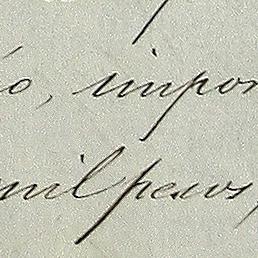 o, impor
mil pesos,